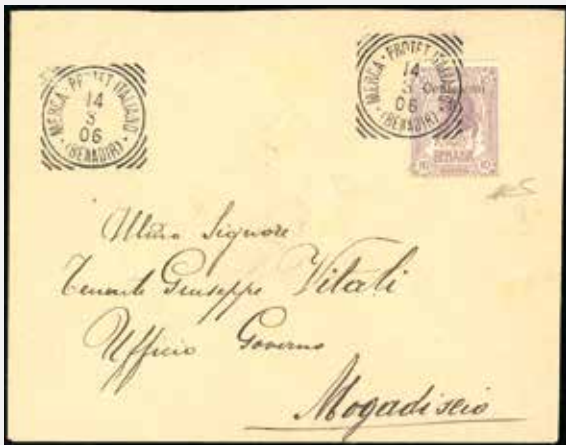 MERCA · PROTET ITALIANO · (BENADIR)
14
3
06
MERCA · PROTET ITALIANO · (BENADIR)
14
3
06
BENADIR
10 10
Signore
Tenente Giuseppe Vitali
Ufficio Governo
Mogadiscio